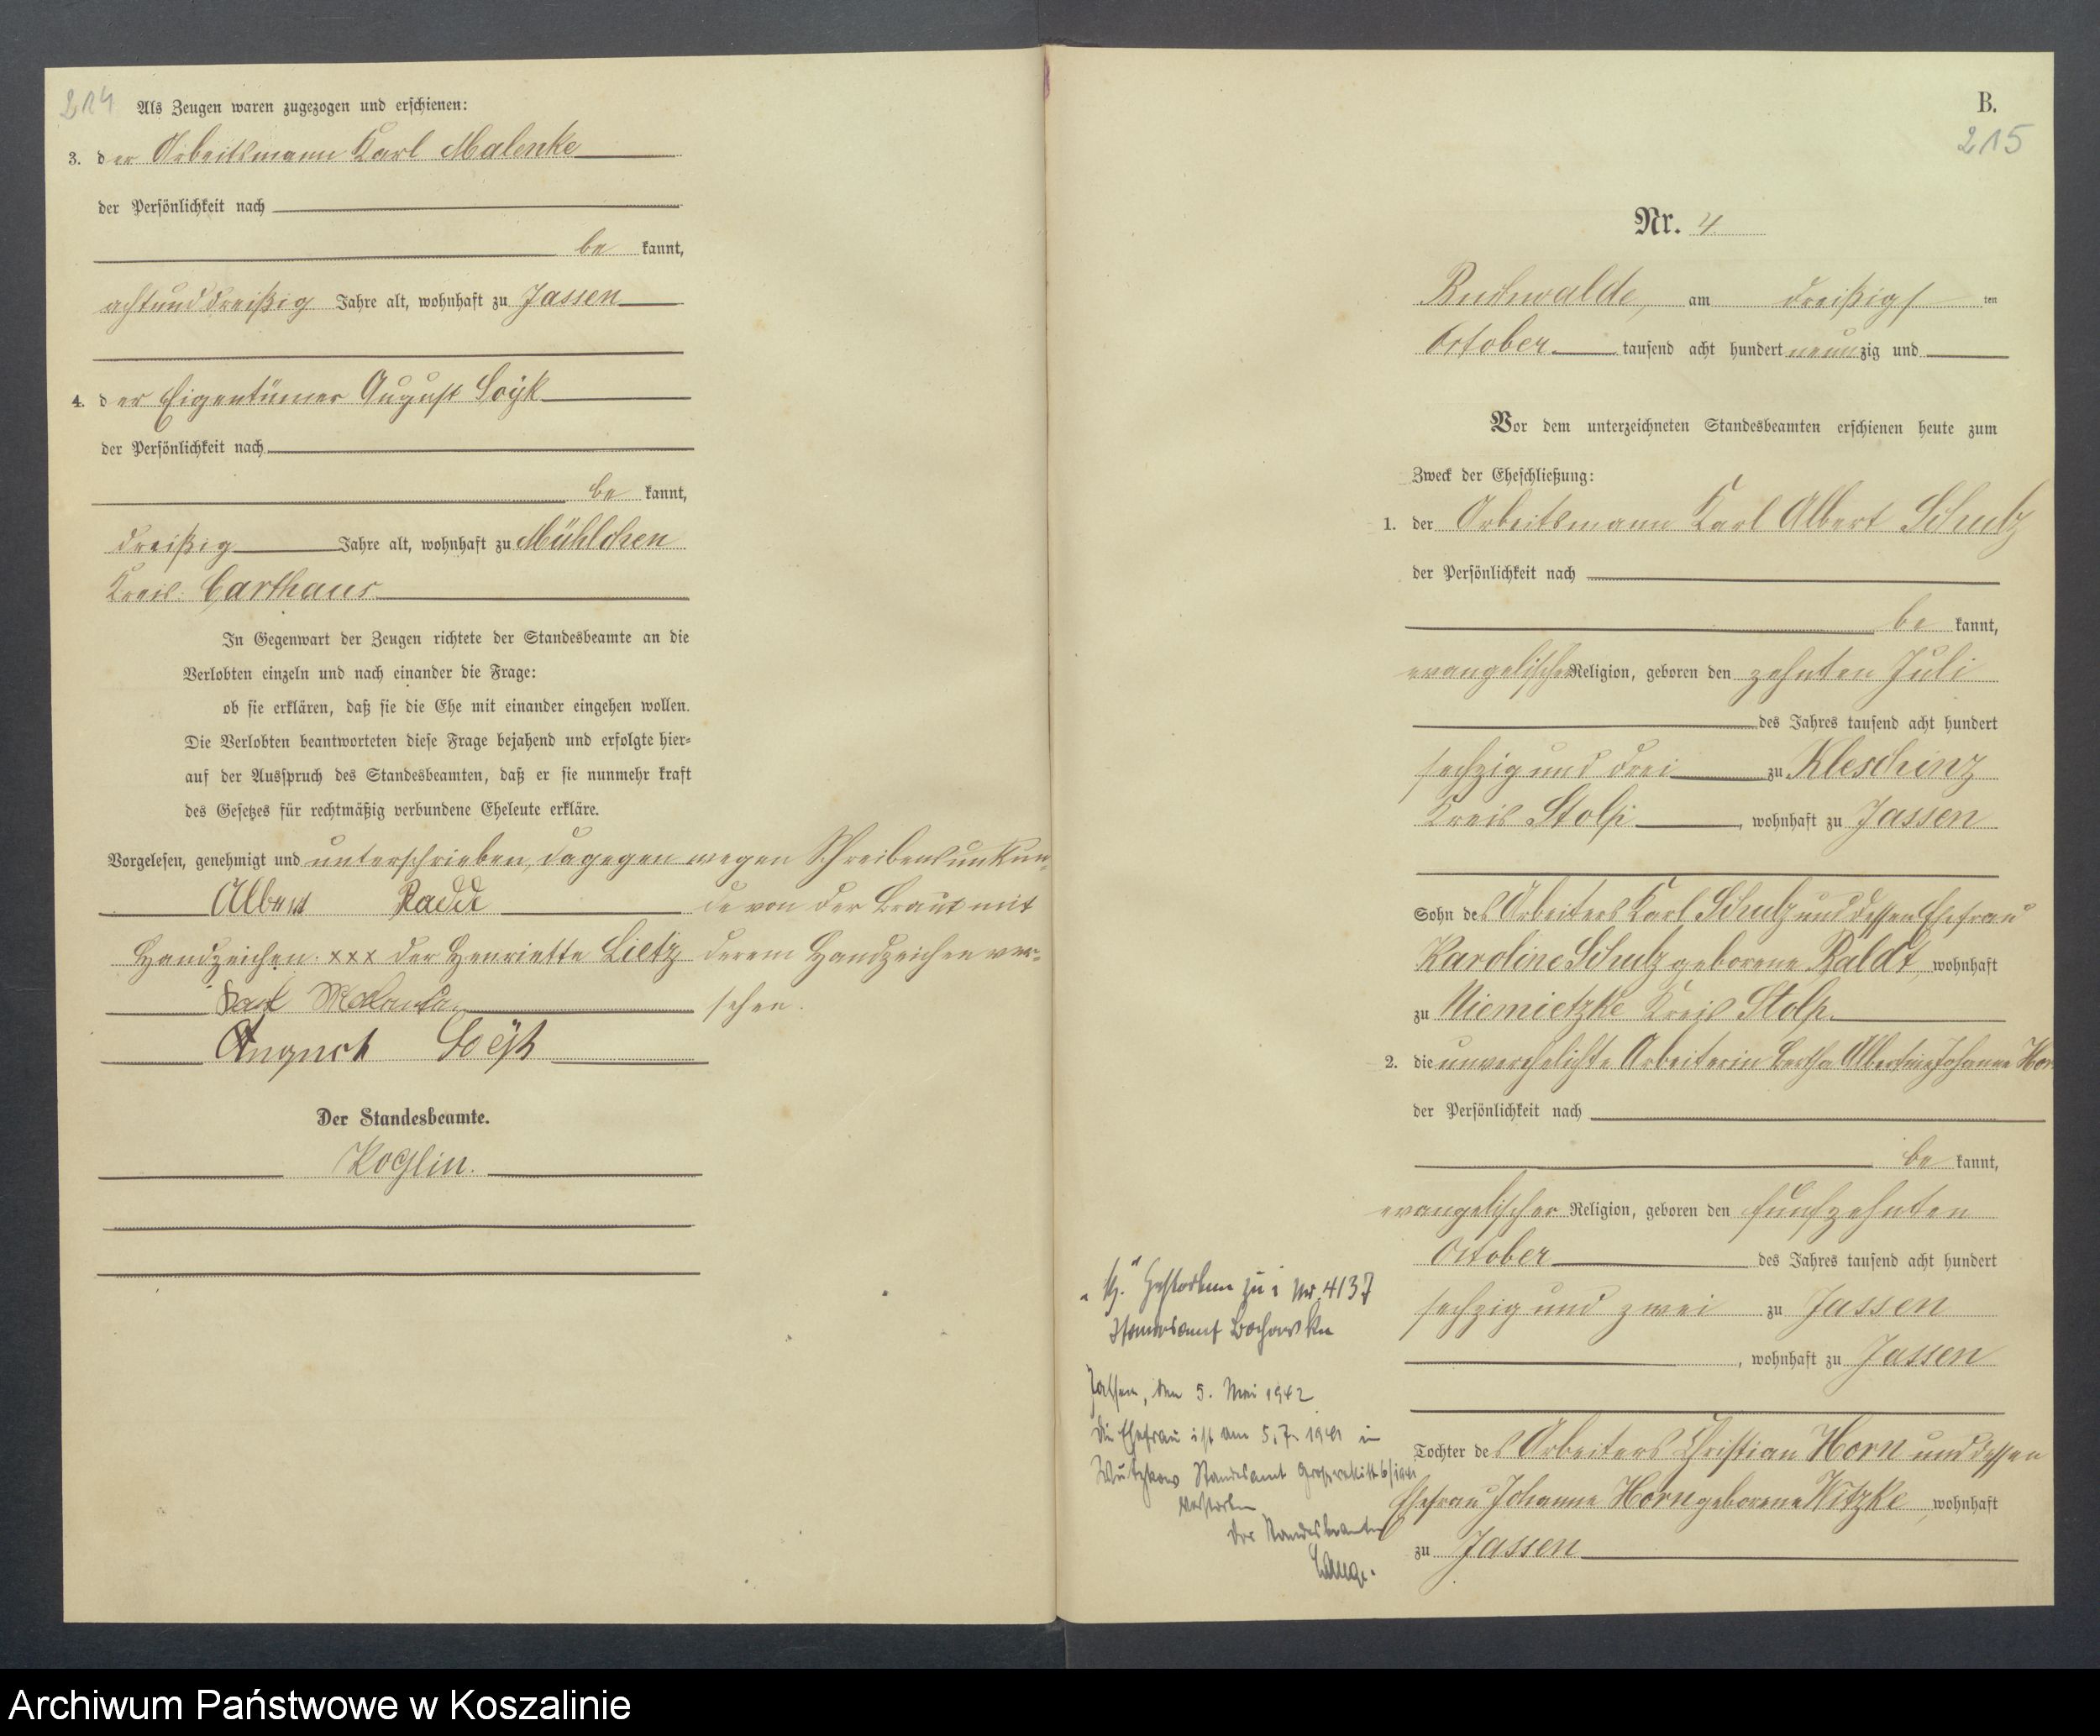 214
Als Zeugen waren zugezogen und erschienen:
3. der Arbeitsmann Karl Malenke
der Persönlichkeit nach
be kannt,
achtunddreißig Jahre alt, wohnhaft zu Jassen
4. der Eigentümer August Soÿk
der Persönlichkeit nach
be kannt,
dreißig Jahre alt, wohnhaft zu Mühlchen
Kreis Carthaus
In Gegenwart der Zeugen richtete der Standesbeamte an die
Verlobten einzeln und nach einander die Frage:
ob sie erklären, daß sie die Ehe mit einander eingehen wollen.
Die Verlobten beantworteten diese Frage bejahend und erfolgte hier-
auf der Ausspruch des Standesbeamten, daß er sie nunmehr kraft
des Gesetzes für rechtmäßig verbundene Eheleute erkläre.
Vorgelesen, genehmigt und unterschrieben, dagegen wegen Schreibensunkun-
Albert Radde de von der Braut mit
Handzeichen xxx der Henriette Lietz derem Handzeichen ver-
Karl sehen.
August Soÿk
Der Standesbeamte.
Koglin.
B.
215
Nr. 4
am dreißigsten
October tausend acht hundert neunzig und
Vor dem unterzeichneten Standesbeamten erschienen heute zum
Zweck der Eheschließung:
1. der Arbeitsmann Karl Albert Schulz
der Persönlichkeit nach
be kannt,
evangelischer Religion, geboren den zehnten Juli
des Jahres tausend acht hundert
sechzig und drei zu Kleschinz
Kreis Stolp, wohnhaft zu Jassen
Sohn des Arbeiters Karl Schulz und dessen Ehefrau
Karoline Schulz geborene Raldt wohnhaft
zu Niemietzke Kreis Stolp
2. die unverehelichte Arbeiterin Bertha Albertine Johanne Horn
der Persönlichkeit nach
be kannt,
evangelischer Religion, geboren den fünfzehnten
October des Jahres tausend acht hundert
sechzig und zwei zu Jassen
, wohnhaft zu Jassen
Tochter des Arbeiters Christian Horn und dessen
Ehefrau Johanne Horn geborene Witzke wohnhaft
zu Jassen
Gestorben zu 1 Nr. 4137
Standesamt
Jassen, den 5. Mai 1942
Die Ehefrau ist am 5.7.1941 in
Wutzkow Standesamt 6/1941
verstorben
Der Standesbeamte
Lange.
Archiwum Państwowe w Koszalinie